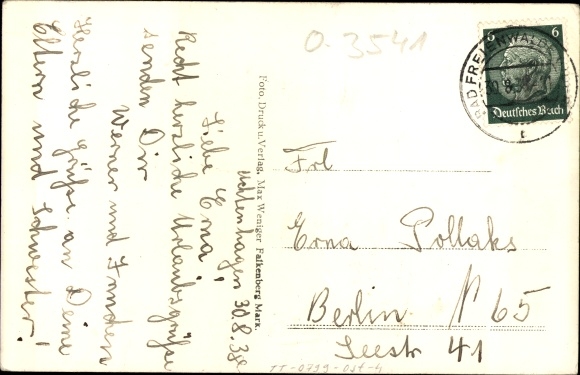 Uchtenhagen 30.8.38
Liebe Erna!
Recht herzliche Urlaubsgrüße
senden Dir
Werner und Ännchen
Herzliche Grüße an Deine
Eltern und Schwester!
Foto, Druck u. Verlag, Max Weniger Falkenberg Mark.
0.3541
6 6
Deutsches Reich
BAD FREIENWALDE
Frl
Erna Pollaks
Berlin N 65
Seestr 41
TT-0799-057-4